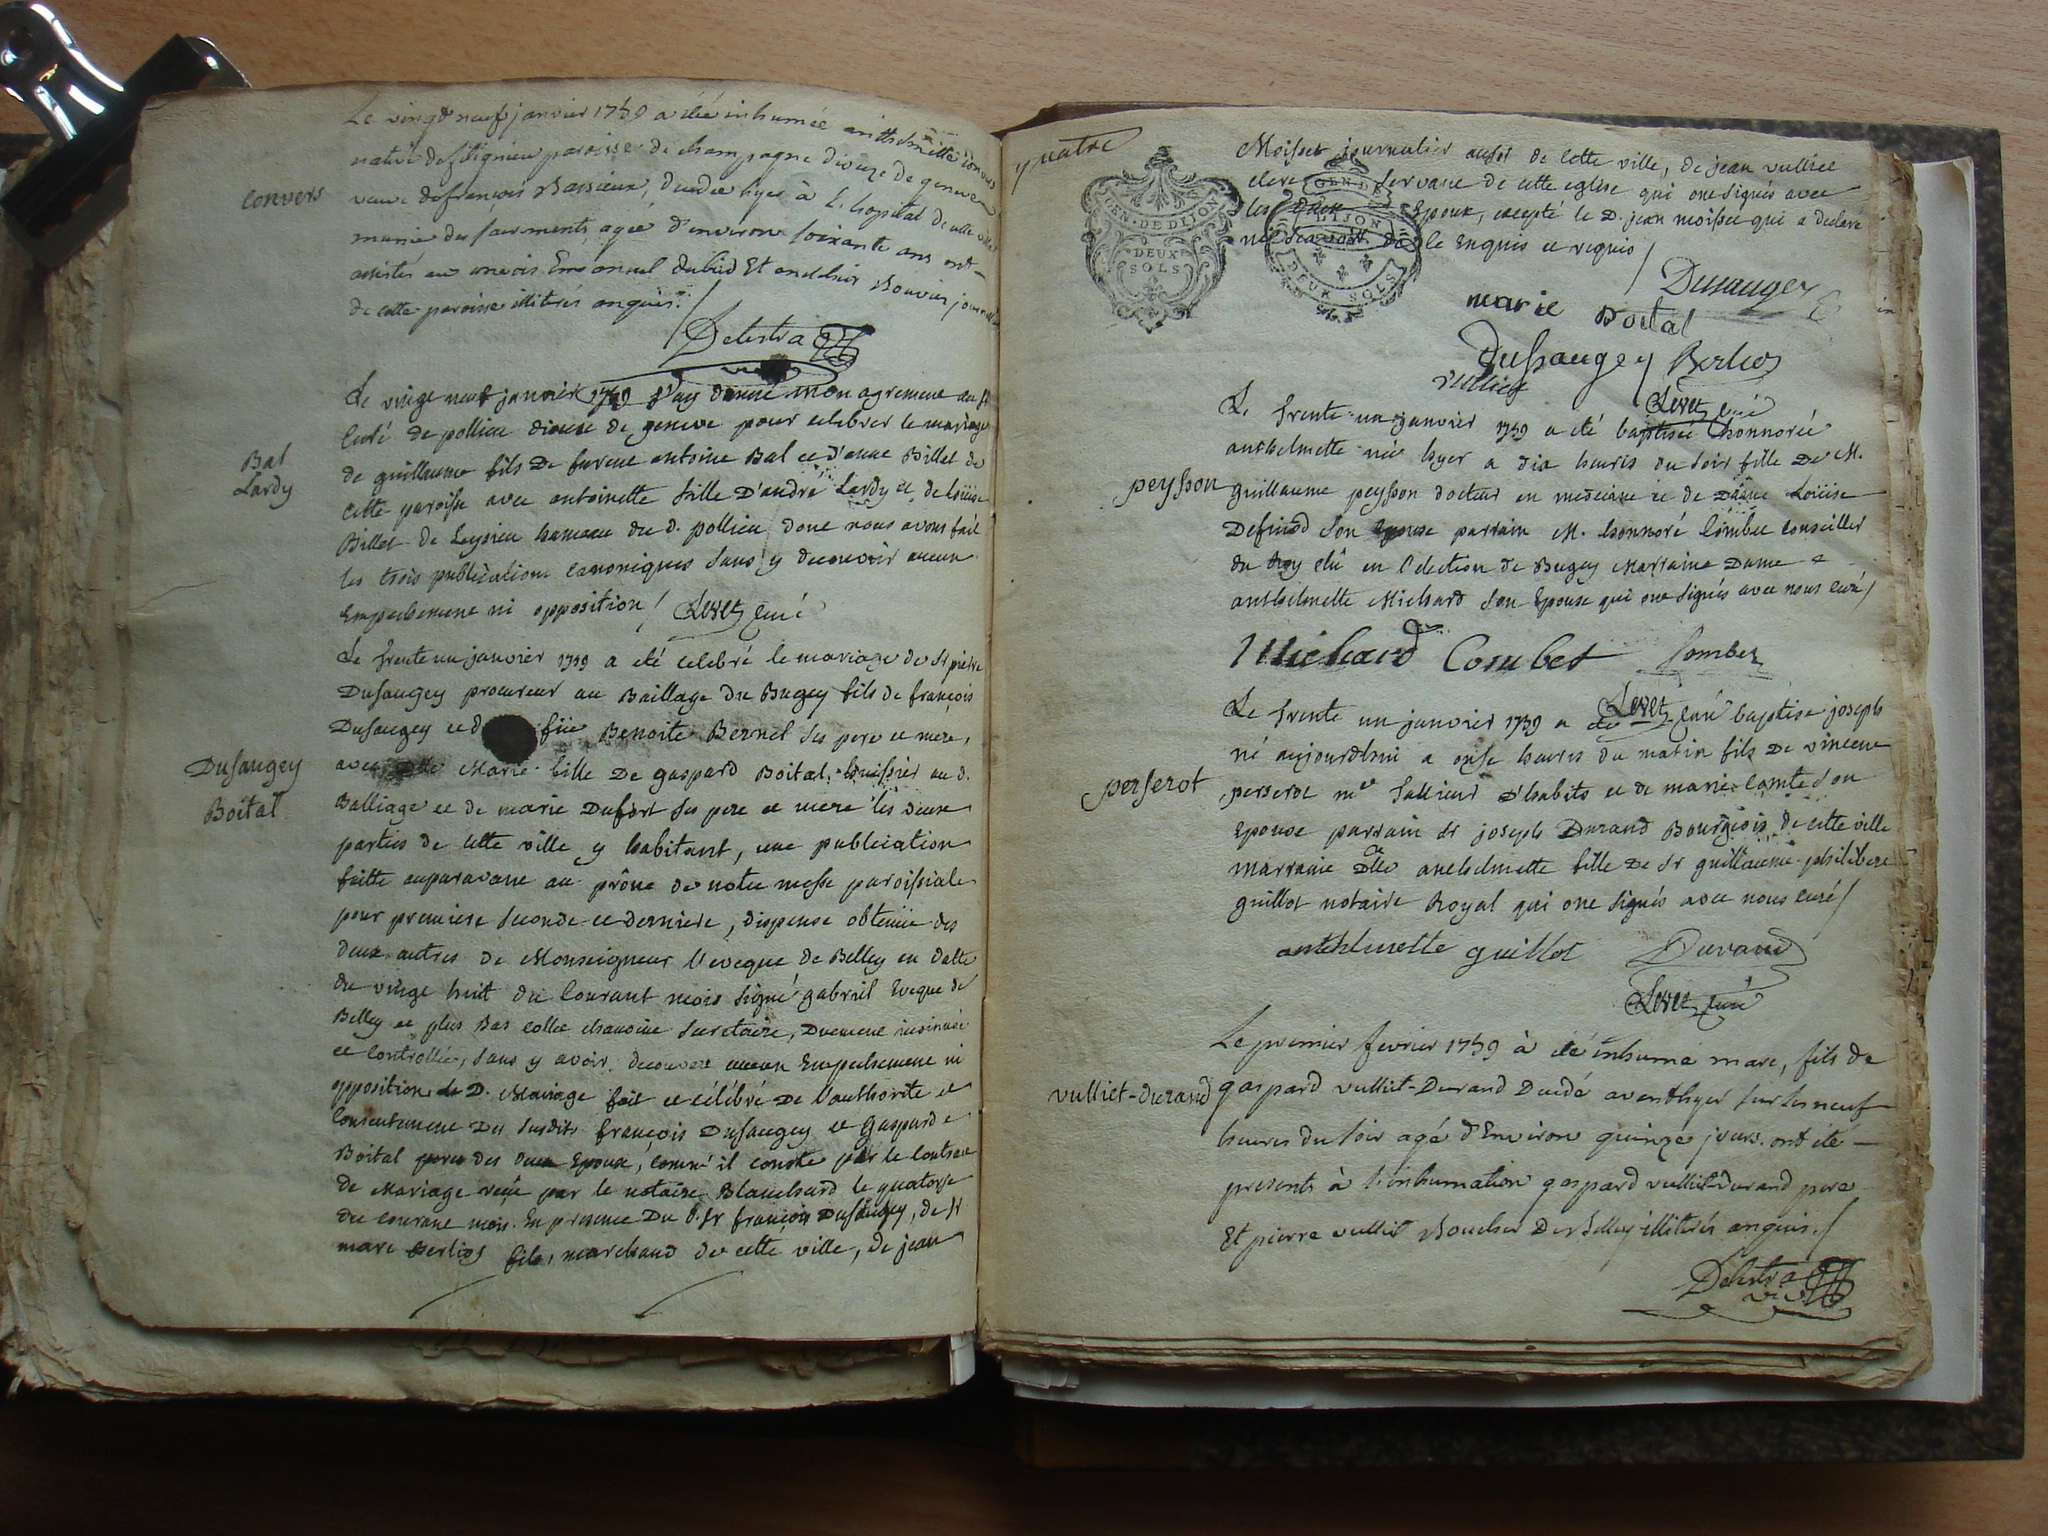 Le vingt neuf janvier 1759 a été inhumée anthelmette convers
native de filignieu paroisse de champagne dioceze de geneve
convers
veuve de françois Bassieux, decedee hyer à L'hopital de cette ville
munie des sacrements, agée d'environ soixante ans ont
assistés au convois Emanuel dubied Et anthelme Bouvier journaliers
de cette paroisse illiterés enquis /
Delestra
vic
Le vingt neuf janvier 1759 J'ay donné mon agrement au Sr
Curé de pollieu diocese de geneve pour celebrer le mariage
Bal
Lardy
de guillaume fils De fureut antoine Bal et d'anne Billet de
cette paroisse avec antoinette fille D'andré Lardy et de Loüise
Billet de Leysieu hameau du d. pollieu dont nous avons fait
les trois publications canoniques sans y decouvrir aucun
Empechement ni opposition / Levet curé
Le trente un janvier 1759 a été celebré le mariage de Sr pierre
Dusaugey procureur au Bailliage du Bugey fils de françois
Dusaugey et d füe Benoite Bernet ses pere et mere,
Dusaugey
Boital
avec Dlle Marie fille De gaspard Boital, huissier au d.
Balliage et de marie Dufort ses pere et mere les deux
parties de cette ville y habitant, une publication
faitte auparavant au prône de notre messe paroissiale
pour premiere seconde et derniere, dispense obtenüe des
deux autres de Monseigneur l'eveque de Belley en datte
du vingt huit du Courant mois signé gabriel Eveque de
Belley et plus Bas collet chanoine secretaire, Duement insinuée
et controllée, sans y avoir decouvert aucun Empechement ni
opposition le D. Mariage fait et célébré De l'authorité et
Consentement Des susdits françois Dusaugey et Gaspard
Boital peres des deux Epoux, comme il conste par le Contract
de Mariage reçu par le notaire Blanchard le quatorse
du courant mois. En presence Du d. Sr françois Dusaugey, de Sr
marc Berlioz fils, marchand de cette ville, de jean
quatre
GEN · DE DIJON
DEUX
SOLS
GEN. DE
DIJON
DEUX SOLS
Moisset journalier aussi de cette ville, de jean vulliet
clerc servant de cette eglise qui ont signés avec
les Epoux, excepté le D. jean moisset qui a declaré
ne sçavoir de le Enquis et requis /
Dusaugey
marie Boital
Dusaugey Berlioz
vulliet
Levet curé
Le trente-un janvier 1759 a été baptisée honnorée
anthelmette née hyer a dix heures du soir fille De M.
peysson
guillaume peysson docteur en medecine et de Dame Loüise
Definod son Epouse parrain M. honnoré Combet Conseiller
du Roy élû en l'election de Bugey Marraine Dame
anthelmette Michard son Epouse qui ont signés avec nous curé /
Michard Combet Combet
Levet curé
Le trente un janvier 1759 a été baptisé joseph
né aujourdhui a onse heures du matin fils De vincent
perserot
perserot me tailleur d'habits et de marie Comte son
Epouse parrain Sr joseph Durand Bourgeois de cette ville
marraine Dlle anthelmette fille De Sr guillaume philibert
guillot notaire Royal qui ont signés avec nous curé /
anthelmette guillot Durand
Levet curé
Le premier fevrier 1759 à été inhumé marc, fils de
vulliet-durand
gaspard vulliet-Durand Decedé avant hyer sur les neuf
heures du soir agé d'Environ quinze jours. ont été
presents à l'inhumation gaspard vulliet-durand pere
Et pierre vulliet Boucher De Belley illiterés enquis. /
Delestra
vic